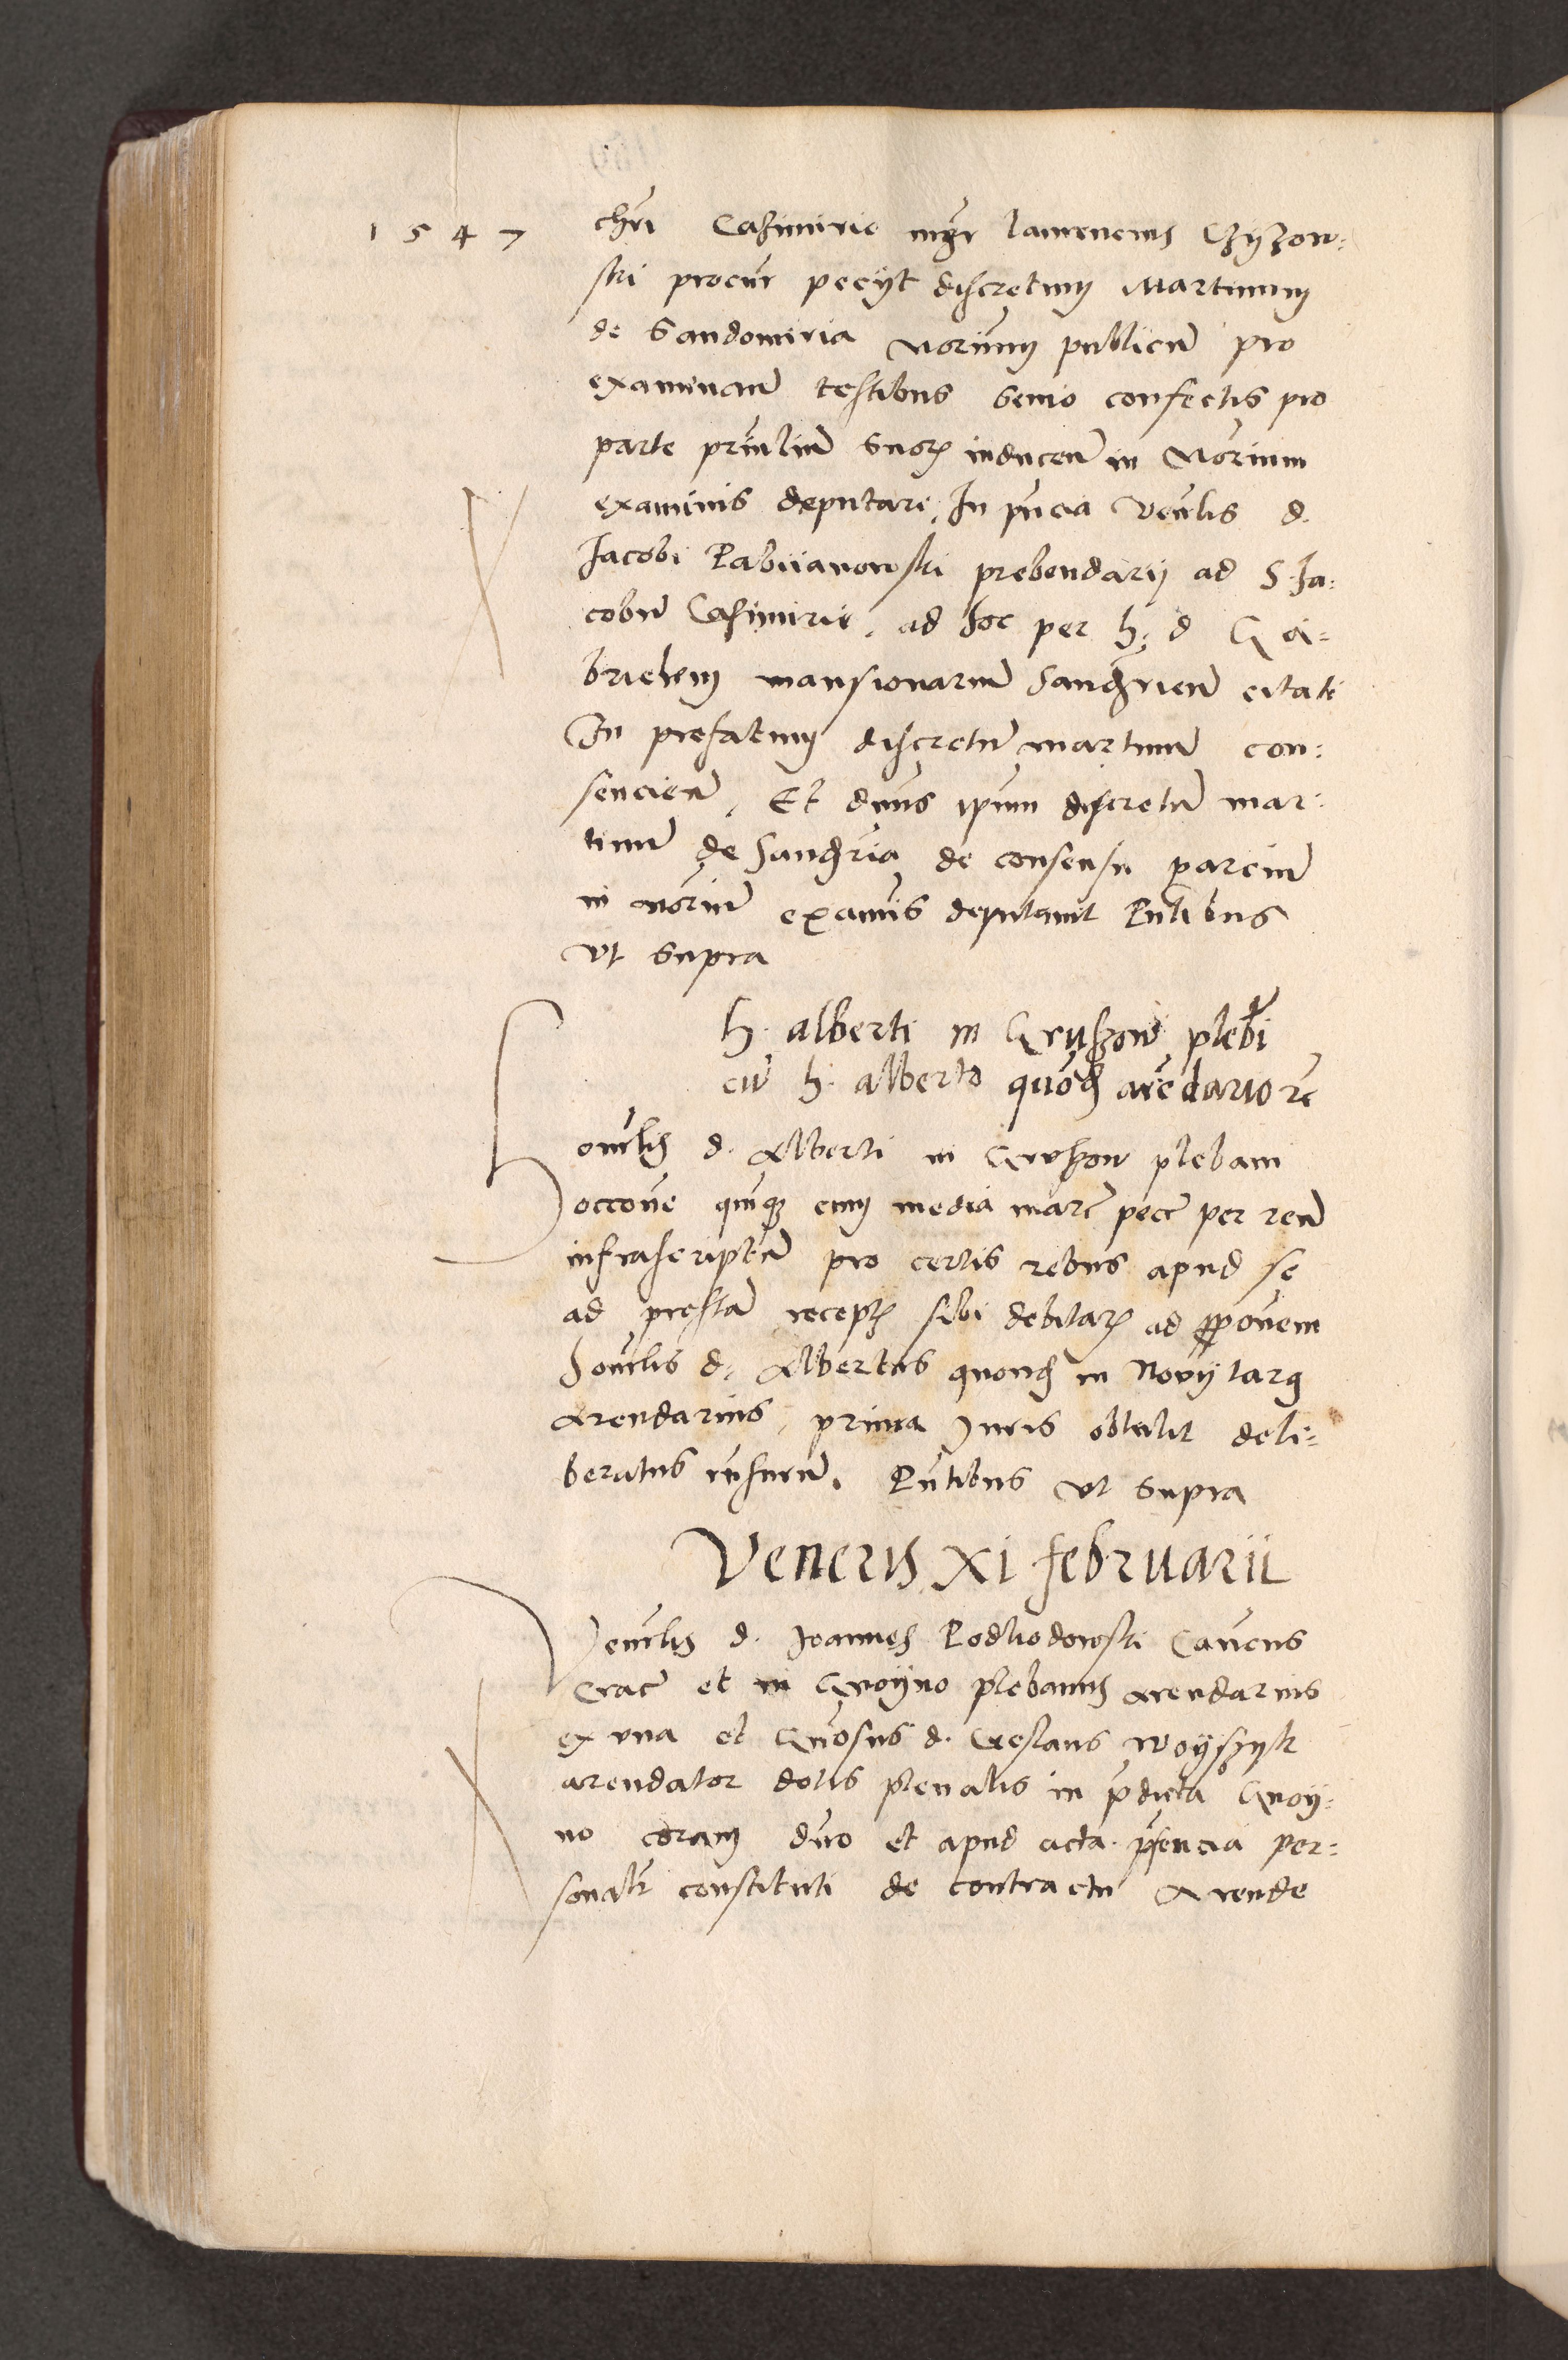 1547
chri Casimirie mgr laurencius Czyzow:
ski procur peciit discretum Martinum
de Sandomiria norium publicu pro
examinan testibus senio confectis pro
parte prinlium suor inducen in Norium
examinis deputari, In pncia Venlis d.
Jacobi Pabiianowski prebendarij ad S. Ja:
cobu Casimirie, ad hoc per h. d Ga=
brielem mansionariu Sandrien citati
In prefatum discretu martinu con:
sencien, Et dnus ipsum discretu mar:
tinu de Sandria de consensu parciu
in noriu examis deputavit Pntibus
vt supra
h. alberti in Gruszow plebi
cu h. alberto quod arendario re
Honlis d. Alberti in Gruszow plebani
accone quinq cum media marc pecc per reu
infrascriptu pro certis rebus apud se
ad presta recept sibi debitar ad pponem
honlis d. Albertus quond in Novytarg
Arendarius, prima Juris obtulit deli=
beratus rnsuru. Pntibus vt supra
Veneris xi februarii
Venlis d. Joannes Podlodowski Canons
Crac et in Gnoyno plebanus arendarius
ex vna et Gnosus d. Creslaus Woyszyk
arendator dotis plenalis in pdicta Gnoy:
no coram dno et apud acta psencia per:
sonalr constituti de contractu Arende